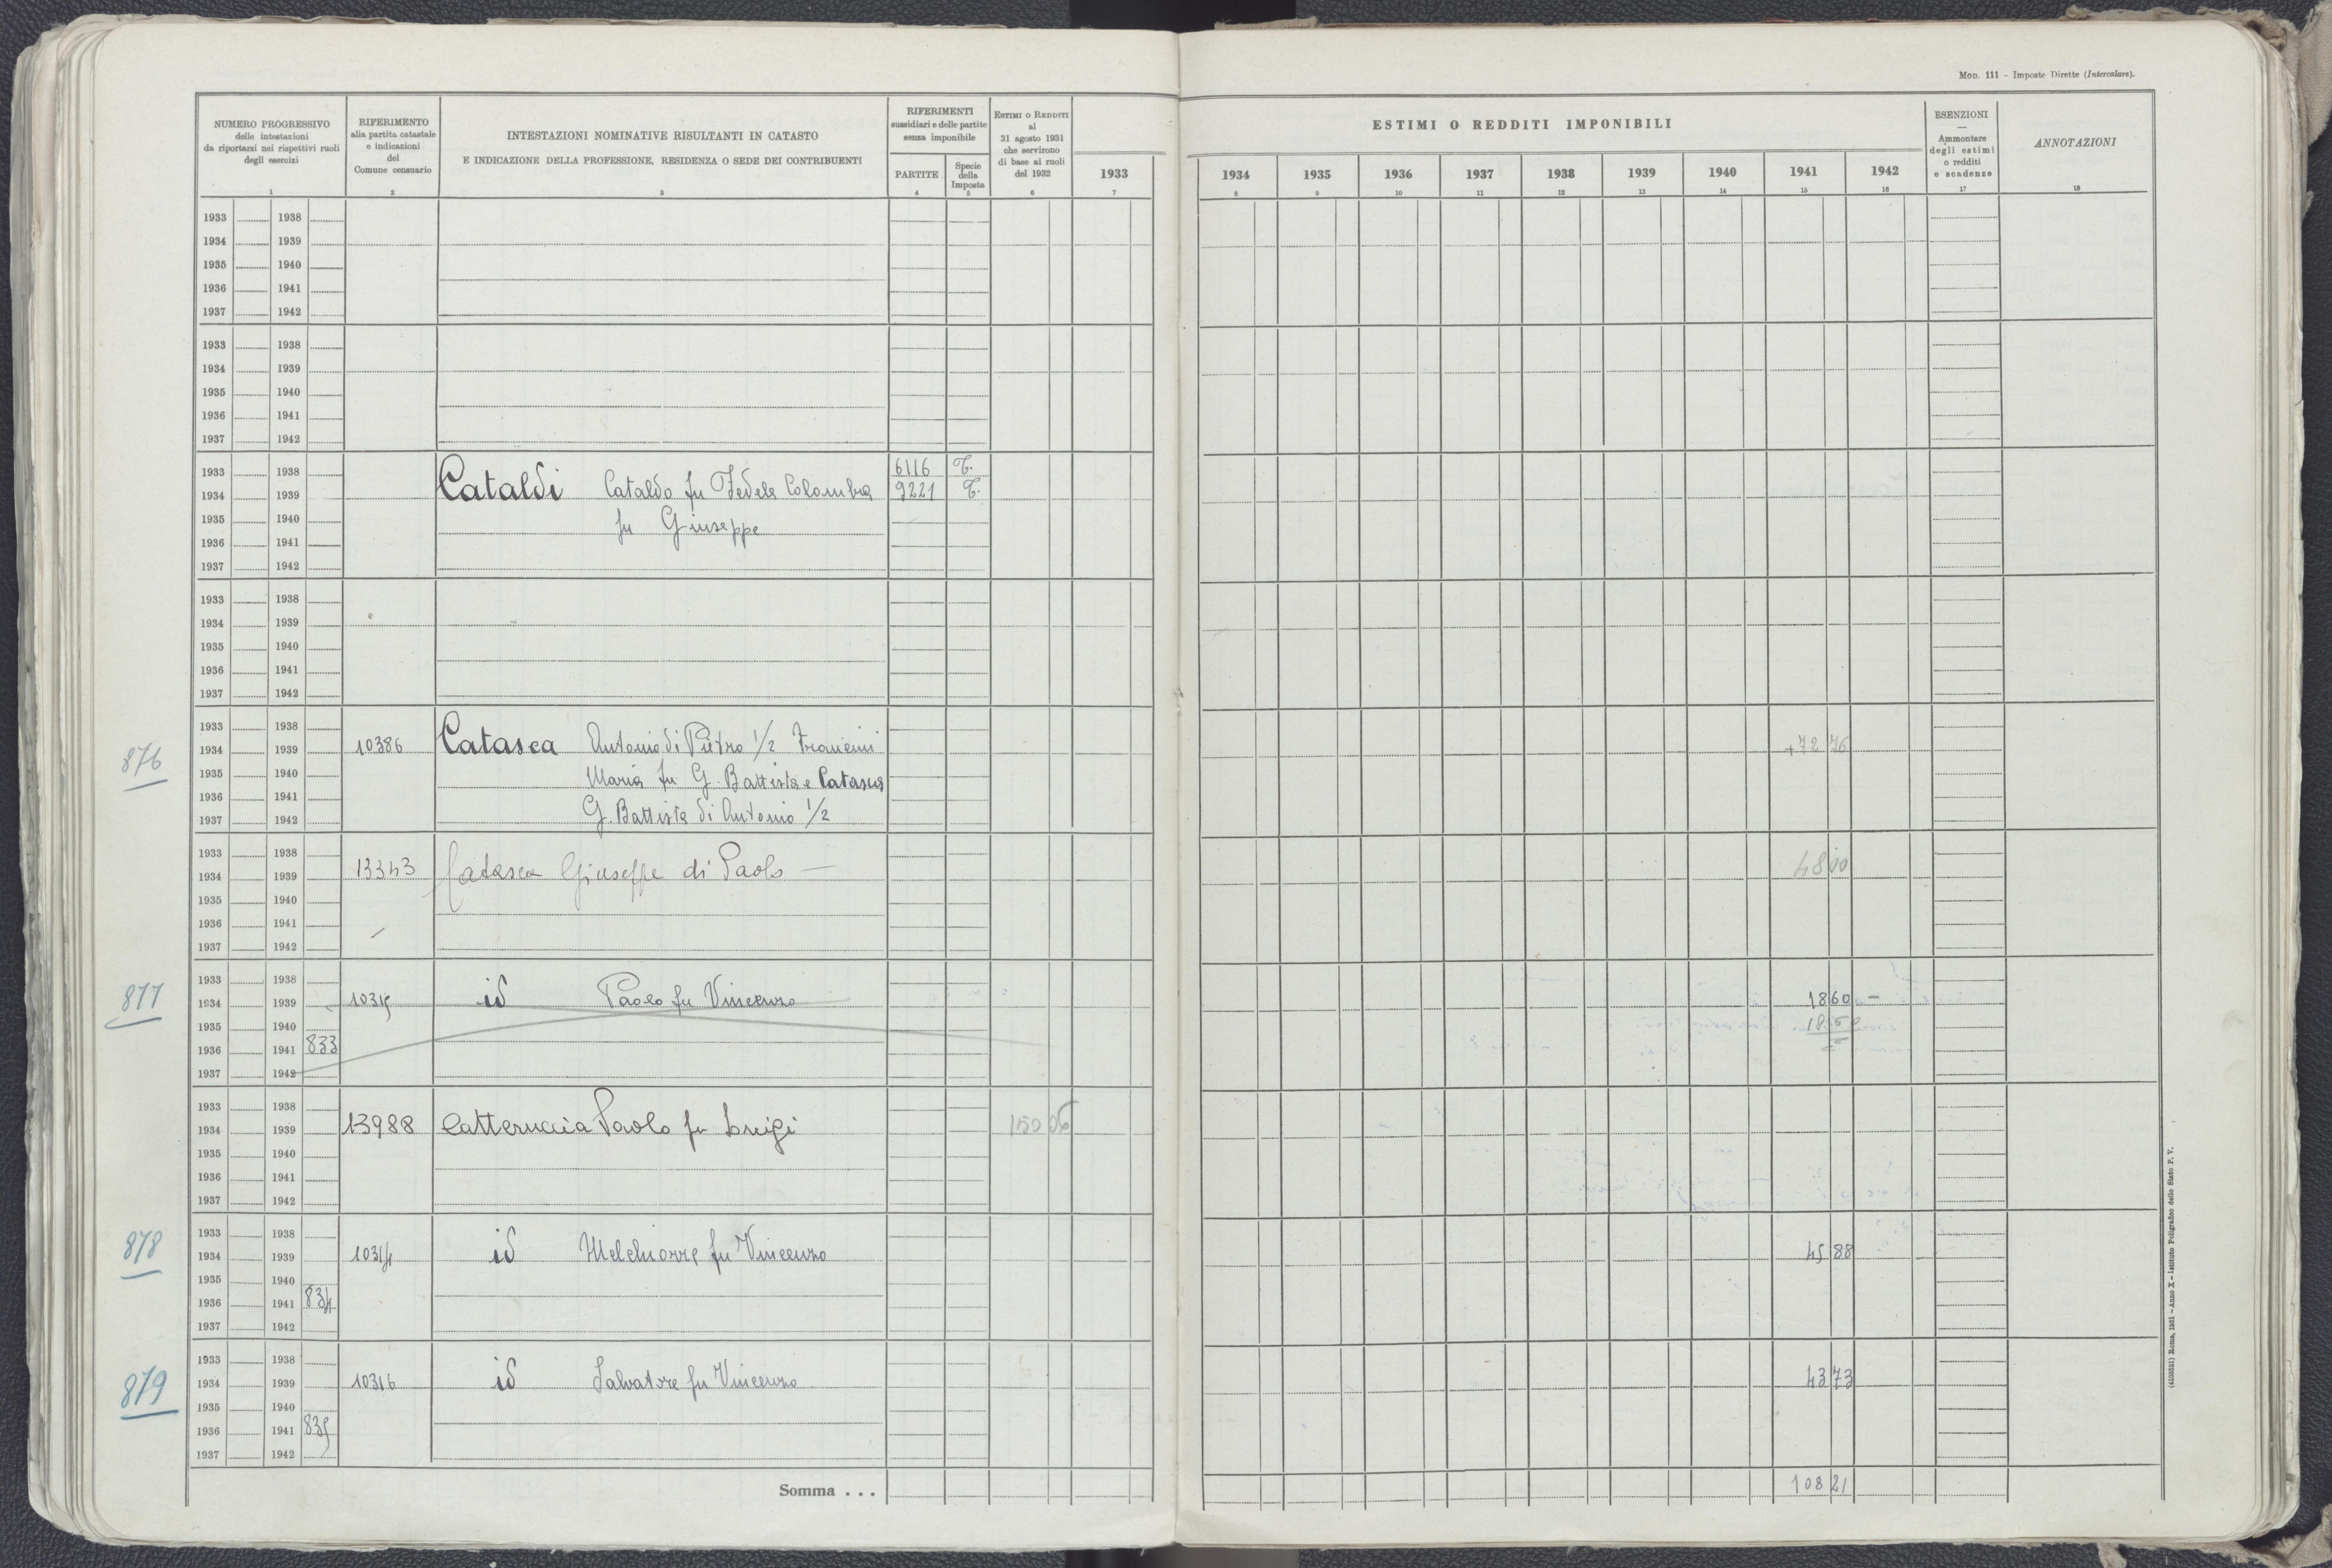 MOD. 111 – Imposte Dirette (Intercalare).
NUMERO PROGRESSIVO
delle intestazioni
da riportarsi nei rispettivi ruoli
degli esercizi
1
RIFERIMENTO
alla partita catastale
e indicazioni
del
Comune censuario
2
INTESTAZIONI NOMINATIVE RISULTANTI IN CATASTO
E INDICAZIONE DELLA PROFESSIONE, RESIDENZA O SEDE DEI CONTRIBUENTI
3
RIFERIMENTI
sussidiari e delle partite
senza imponibile
PARTITE
4
Specie
della
Imposta
5
ESTIMI O REDDITI
al
31 agosto 1931
che servirono
di base ai ruoli
del 1932
6
1933
7
ESTIMI O REDDITI IMPONIBILI
1934 1935 1936 1937 1938 1939 1940 1941 1942
8 9 10 11 12 13 14 15 16
ESENZIONI
—
Ammontare
degli estimi
o redditi
e scadenze
17
ANNOTAZIONI
18
1933 1938
1934 1939
1935 1940
1936 1941
1937 1942
1933 1938
1934 1939
1935 1940
1936 1941
1937 1942
1933 1938 6116 T.
1934 1939 Cataldi Cataldo fu Fedele Colomba 9221 T.
1935 1940 fu Giuseppe
1936 1941
1937 1942
1933 1938
1934 1939
1935 1940
1936 1941
1937 1942
1933 1938
876 1934 1939 10386 Catasca Antonio di Pietro 1/2 Francini +72 76
1935 1940 Maria fu G. Battista e Catasca
1936 1941
1937 1942 G. Battista di Antonio 1/2
1933 1938
1934 1939 13343 Catasca Giuseppe di Paolo — 48 00
1935 1940
1936 1941
1937 1942
1933 1938
877 1934 1939 10315 id Paolo fu Vincenzo 18 60 –
1935 1940
1936 1941 833
1937 1942
1933 1938
1934 1939 13988 Catteruccia Paolo fu Luigi 150 06
1935 1940
1936 1941
1937 1942
1933 1938
878 1934 1939 10314 id Melchiorre fu Vincenzo 45 88
1935 1940
1936 1941 834
1937 1942
1933 1938
879 1934 1939 10316 id Salvatore fu Vincenzo 43 73
1935 1940
1936 1941 835
1937 1942
Somma . . . 108 21
(4103581) Roma, 1931 – Anno X – Istituto Poligrafico dello Stato P. V.